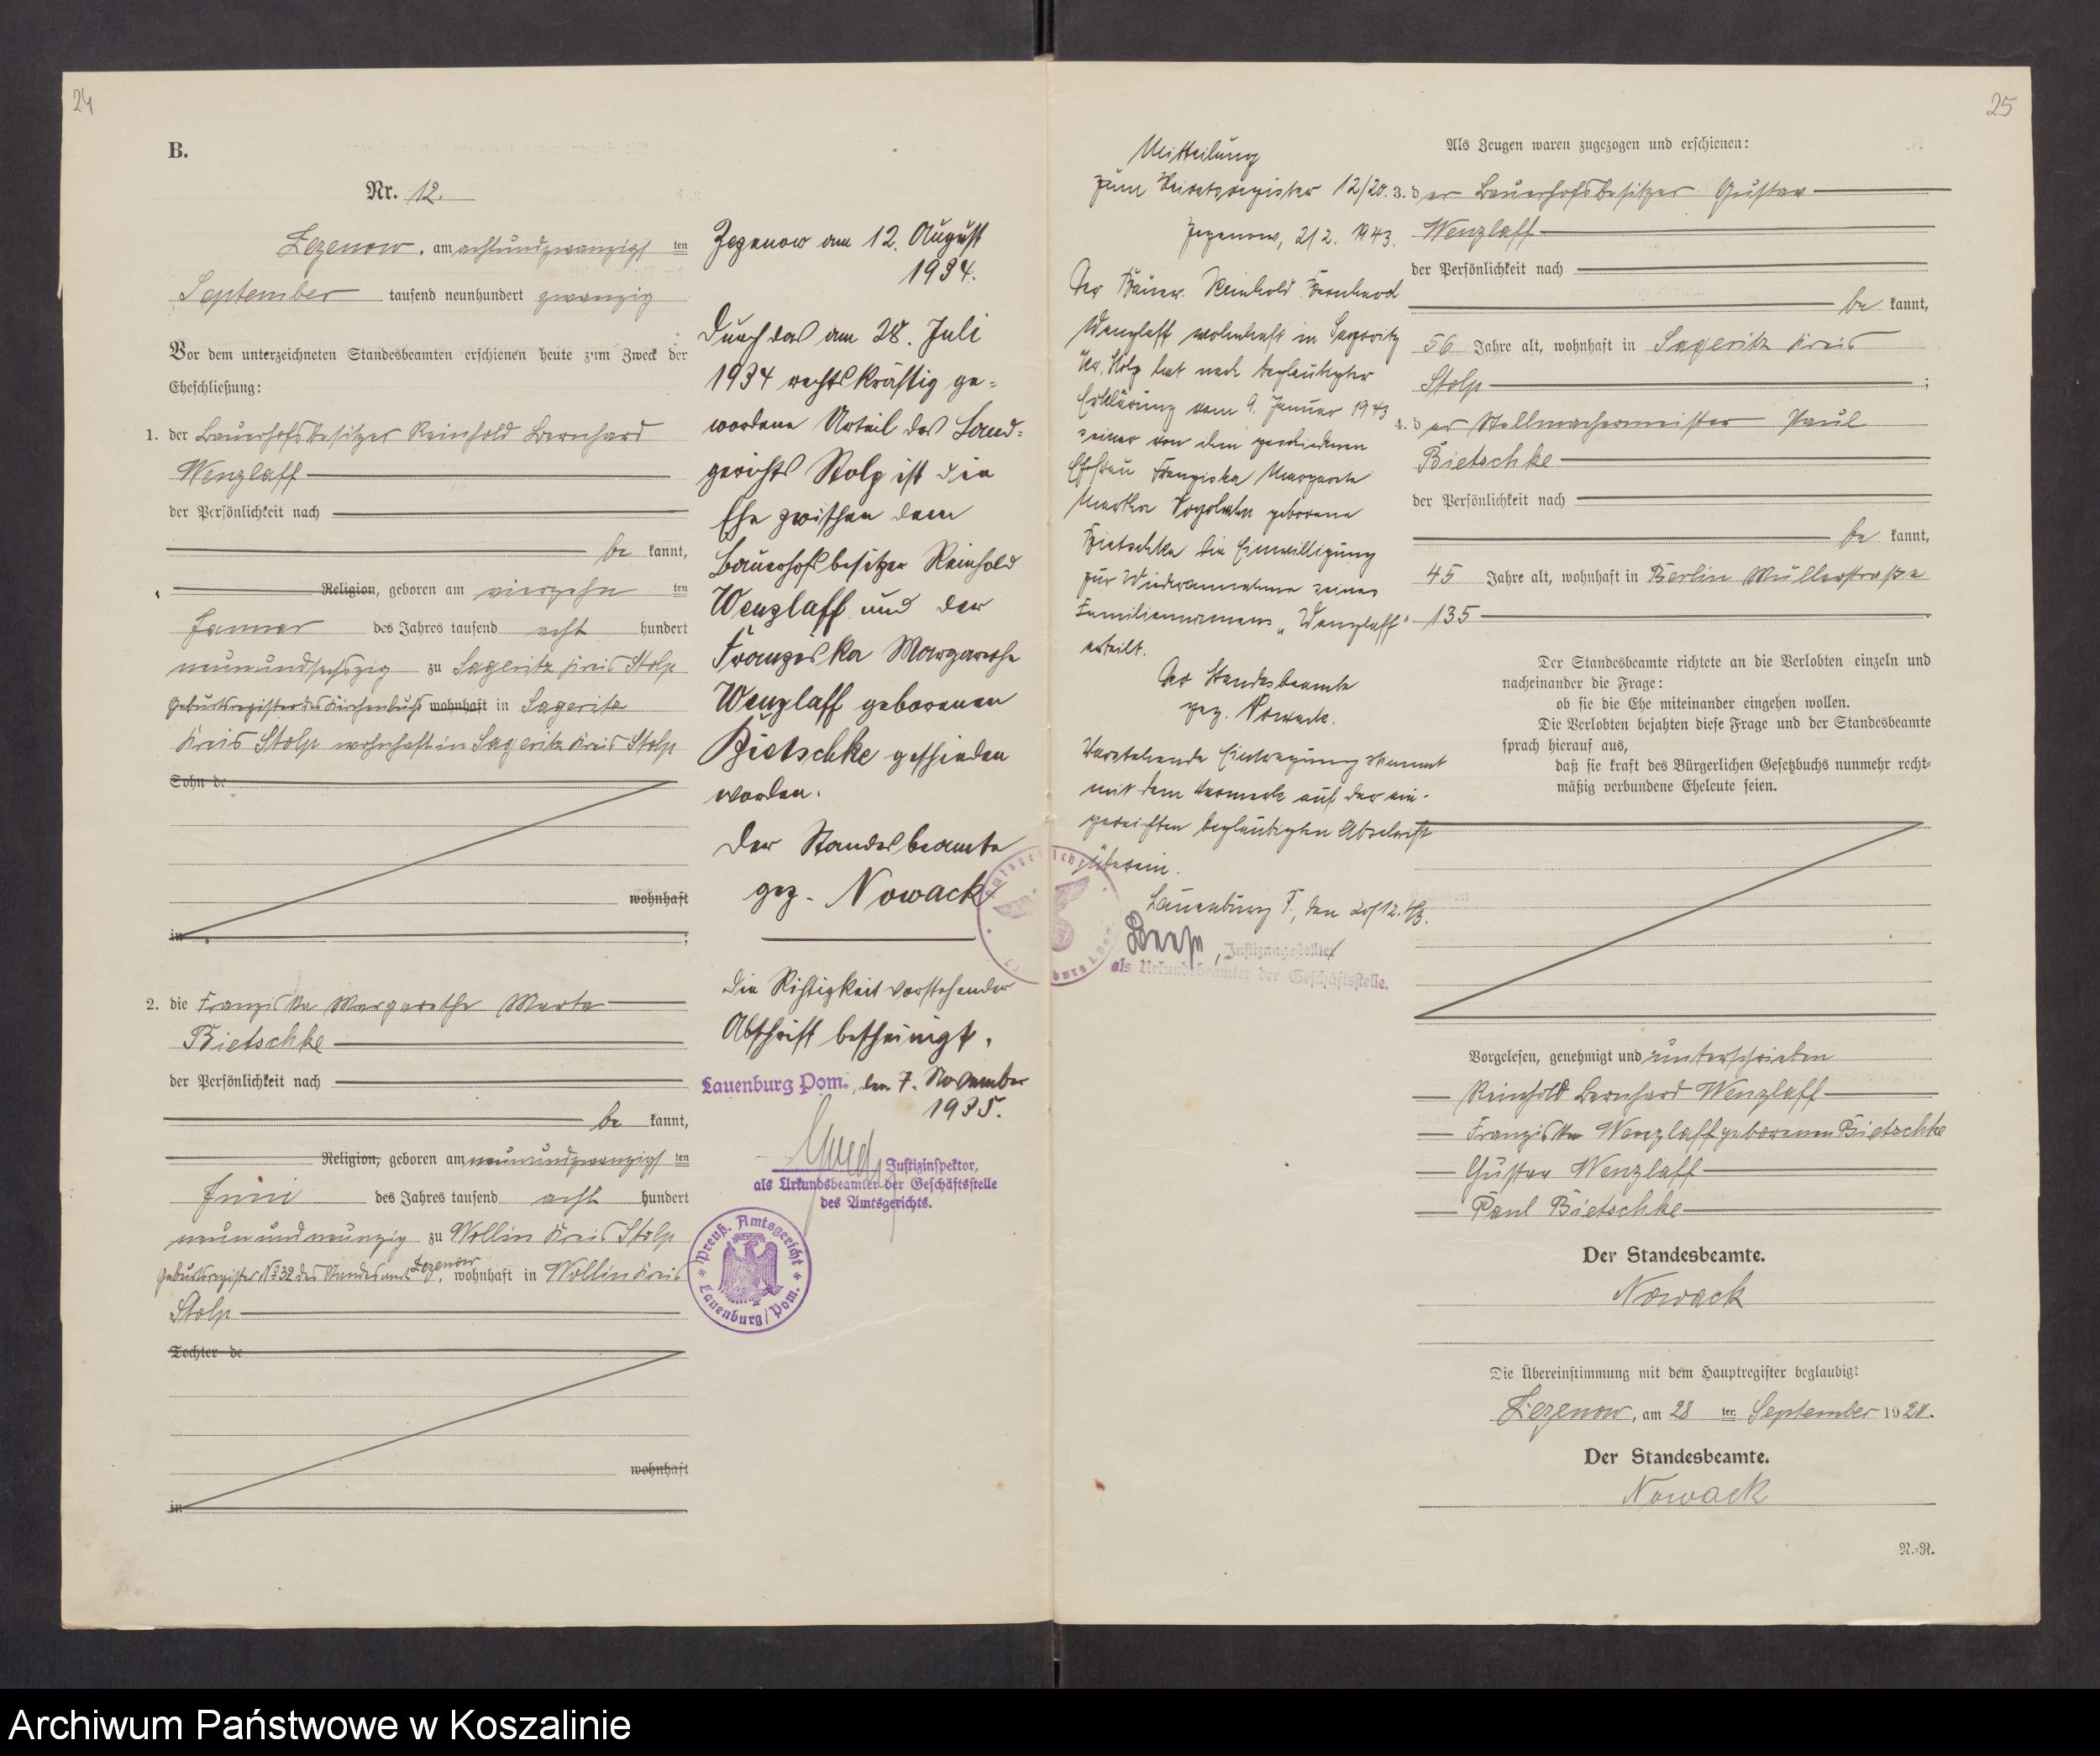 24
B.
Nr. 12.
Zezenow, am achtundzwanzigsten
September tausend neunhundert zwanzig
Vor dem unterzeichneten Standesbeamten erschienen heute zum Zweck der
Eheschließung:
1. der Bauerhofsbesitzer Reinhold Bernhard
Wenzlaff
der Persönlichkeit nach
be kannt,
Religion, geboren am vierzehn ten
Januar des Jahres tausend acht hundert
neunundsechszig zu Sageritz Kreis Stolp
Geburtsregister des Kirchenbuchs wohnhaft in Sageritz
Kreis Stolp wohnhaft in Sageritz Kreis Stolp
Sohn de
wohnhaft
in ;
2. die Franziska Margarethe Marta
Bietschke
der Persönlichkeit nach
be kannt,
Religion, geboren am neunundzwanzigsten
Juni des Jahres tausend acht hundert
neunundneunzig zu Wollin Kreis Stolp
Geburtsregister No 32 des Standesamts Zezenow, wohnhaft in Wollin Kreis
Stolp
Tochter de
wohnhaft
in
Zezenow am 12. August
1934.
Durch das am 28. Juli
1934 rechtskräftig ge-
wordene Urteil des Land-
gerichts Stolp ist die
Ehe zwischen dem
Bauerhofsbesitzer Reinhold
Wenzlaff und der
Franziska Margarethe
Wenzlaff geborenen
Bietschke geschieden
worden.
Der Standesbeamte
gez. Nowack
Die Richtigkeit vorstehender
Abschrift bescheinigt.
Lauenburg Pom., den 7. November
1935.
Justizinspektor,
als Urkundsbeamter der Geschäftsstelle
des Amtsgerichts.
Preuß. Amtsgericht
Lauenburg/Pom.
25
Mitteilung
zum Heiratsregister 12/20.
Zezenow, 2/2. 1943.
Der Bauer Reinhold Bernhard
Wenzlaff wohnhaft in Sageritz
Kr. Stolp hat nach beglaubigter
Erklärung vom 9. Januar 1943
seiner von ihm geschiedenen
Ehefrau Franziska Margarete
Martha geborene
Bietschke die Einwilligung
zur Wiederannahme seines
Familiennamens „Wenzlaff“
erteilt.
Der Standesbeamte
gez. Nowack.
Vorstehende Eintragung stimmt
mit dem Vermerk auf der ein-
gereichten beglaubigten Abschrift
überein.
Lauenburg P., den 20/12. 43.
Justizangestellter
als Urkundsbeamter der Geschäftsstelle.
Als Zeugen waren zugezogen und erschienen:
3. der Bauerhofsbesitzer Gustav
Wenzlaff
der Persönlichkeit nach
be kannt,
56 Jahre alt, wohnhaft in Sageritz Kreis
Stolp ;
4. der Stellmachermeister Paul
Bietschke
der Persönlichkeit nach
be kannt,
45 Jahre alt, wohnhaft in Berlin Müllerstraße
135
Der Standesbeamte richtete an die Verlobten einzeln und
nacheinander die Frage:
ob sie die Ehe miteinander eingehen wollen.
Die Verlobten bejahten diese Frage und der Standesbeamte
sprach hierauf aus,
daß sie kraft des Bürgerlichen Gesetzbuchs nunmehr recht-
mäßig verbundene Eheleute seien.
Vorgelesen, genehmigt und unterschrieben
Reinhold Bernhard Wenzlaff
Franziska Wenzlaff geborenen Bietschke
Gustav Wenzlaff
Paul Bietschke
Der Standesbeamte.
Nowack
Die Übereinstimmung mit dem Hauptregister beglaubigt
Zezenow, am 28 ten September 1920.
Der Standesbeamte.
Nowack
N.-R.
Archiwum Państwowe w Koszalinie